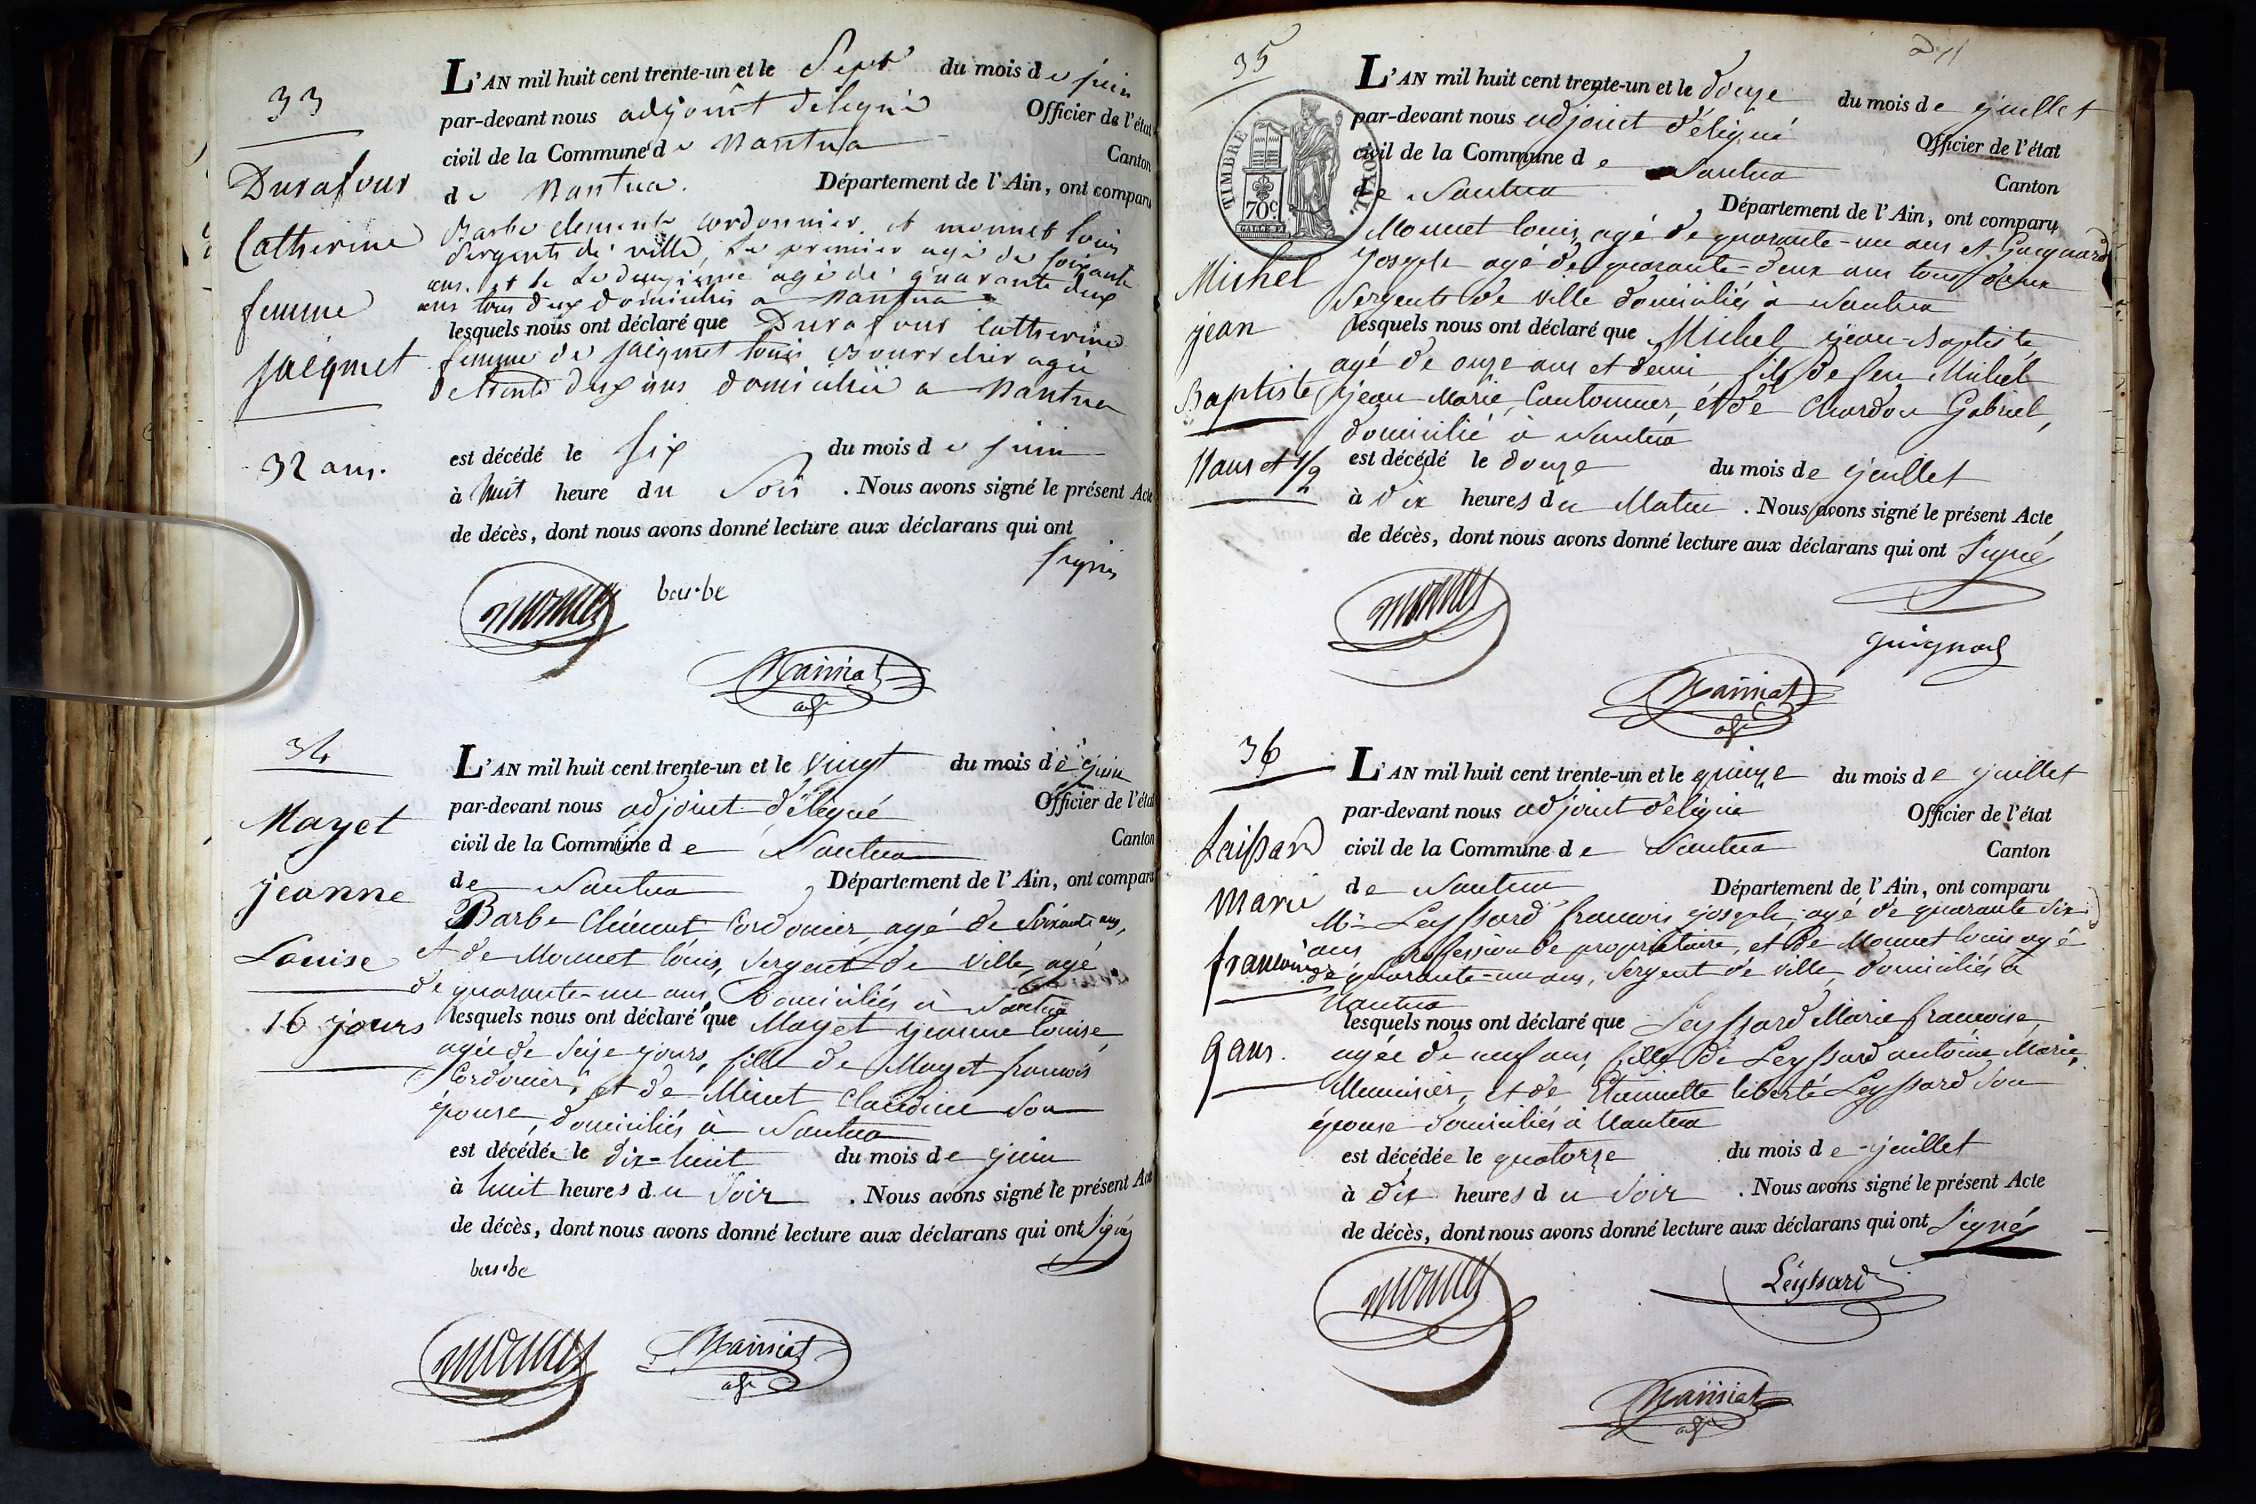 33
Durafour
Catherine
femme
jacqmet
32 ans.
L'AN mil huit cent trente-un et le Sept du mois de juin
par-devant nous adjoint délégué Officier de l'état
civil de la Commune de Nantua Canton
de Nantua. Département de l'Ain, ont comparu
Barbe clement cordonnier. et monnet louis
Sergents de ville, le premier agé de soixante
ans. et le Le deuxieme agé de quarante deux
ans tous deux domiciliés a Nantua
lesquels nous ont déclaré que Durafour Catherine
femme de jacqmet louis Bourrelier agé
de trente deux ans domiciliée a Nantua
est décédé le six du mois de juin
à huit heure du Soir. Nous avons signé le présent Acte
de décès, dont nous avons donné lecture aux déclarans qui ont
signés
monnet barbe
Mainiat
adj
34
Mayet
jeanne
Louise
16 jours
L'AN mil huit cent trente-un et le vingt du mois de juin
par-devant nous adjoint délégué Officier de l'état
civil de la Commune de Nantua Canton
de Nantua Département de l'Ain, ont comparu
Barbe Clément Cordonier, agé de Soixante ans,
et de Monnet louis, Sergent de ville, agé
de quarante-un ans, Domiciliés à Nantua
lesquels nous ont déclaré que Mayet jeanne louise,
agée de seize jours, fille de Mayet francois
Cordonier, et de Minet Claudine son
épouse, domiciliés à Nantua
est décédée le dix-huit du mois de juin
à huit heures du Soir. Nous avons signé le présent Acte
de décès, dont nous avons donné lecture aux déclarans qui ont Signés
barbe
monnet Mainiat
adj
35
TIMBRE ROYAL
70c
Michel
jean
Baptiste
11 ans et 1/2
L'AN mil huit cent trente-un et le douze du mois de juillet
par-devant nous adjoint délégué Officier de l'état
civil de la Commune de Nantua Canton
de Nantua Département de l'Ain, ont comparu
Monnet louis, agé de quarante-un ans et Guignard
joseph agé de quarante-deux ans tous deux
Sergents de ville domiciliés à Nantua
lesquels nous ont déclaré que Michel jean-Baptiste
agé de onze ans et demi fils de feu Michel
jean Marie, Cantonnier, et de Chardon Gabriel,
domicilié à Nantua
est décédé le douze du mois de juillet
à Dix heures du Matin. Nous avons signé le présent Acte
de décès, dont nous avons donné lecture aux déclarans qui ont Signé
monnet
guignard
Mainiat
adj
36
Laissard
marie
francoise
9 ans.
L'AN mil huit cent trente-un et le quinze du mois de juillet
par-devant nous adjoint délégué Officier de l'état
civil de la Commune de Nantua Canton
de Nantua Département de l'Ain, ont comparu
Mr Leyssard francois joseph, agé de quarante six
ans, profession de propriétaire, et de Monnet louis agé
de quarante-un ans, Sergent de ville, domiciliés à
Nantua
lesquels nous ont déclaré que Leyssard Marie francoise,
agée de neuf ans, fille de Leyssard antoine Marie,
Menuisier, et de liberté Leyssard son
épouse domiciliés à Nantua
est décédée le quatorze du mois de juillet
à dix heures du Soir. Nous avons signé le présent Acte
de décès, dont nous avons donné lecture aux déclarans qui ont Signés
monnet Léyssard
Mainiat
adj